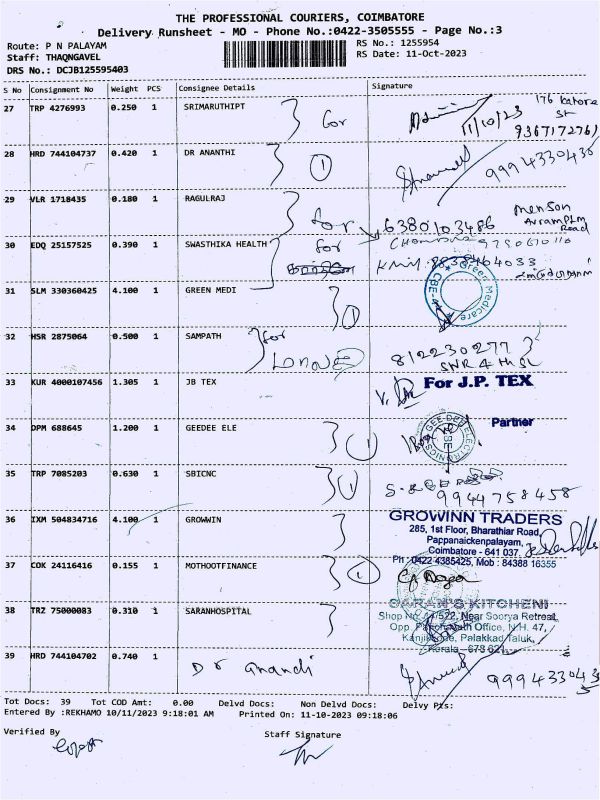 THE PROFESSIONAL COURIERS, COIMBATORE
Delivery Runsheet - MO - Phone No.:0422-3505555 - Page No.:3
Route: P N PALAYAM
RS No.: 1255954
Staff: THAQNGAVEL
RS Date: 11-Oct-2023
DRS No.: DCJB125595403
S No Consignment No Weight PCS Consignee Details Signature
27 TRP 4276993 0.250 1 SRIMARUTHIPT for 11/10/23 176 St
9367172761
28 HRD 744104737 0.420 1 DR ANANTHI 1 9994330430
29 VLR 1718435 0.180 1 RAGULRAJ for 6380103486 Road
30 EDQ 25157525 0.390 1 SWASTHIKA HEALTH for
8838464033
31 SLM 330360425 4.100 1 GREEN MEDI 1 Green Medicare CBE-4
32 HSR 2875064 0.500 1 SAMPATH for 812230277
SNR 4th St
33 KUR 4000107456 1.305 1 JB TEX For J.P. TEX
Partner
34 DPM 688645 1.200 1 GEEDEE ELE 1 GEE-DEE ELECTRONICS CBE
35 TRP 7085203 0.630 1 SBICNC 1 9944758458
36 IXM 504834716 4.100 1 GROWWIN GROWINN TRADERS
285, 1st Floor, Bharathiar Road,
Pappanaickenpalayam,
Coimbatore - 641 037.
Ph : 0422 4385425, Mob : 84388 16355
37 COK 24116416 0.155 1 MOTHOOTFINANCE 1
38 TRZ 75000083 0.310 1 SARANHOSPITAL SARAN'S KITCHENI
Shop No. 41/522, Near Soorya Retreat
Opp. Office, N.H. 47,
Kanjikode, Palakkad Taluk,
Kerala - 678 621
39 HRD 744104702 0.740 1 Dr Anandi 999433043
Tot Docs: 39 Tot COD Amt: 0.00 Delvd Docs: Non Delvd Docs: Delvy Pts:
Entered By :REKHAMO 10/11/2023 9:18:01 AM Printed On: 11-10-2023 09:18:06
Verified By
Staff Signature